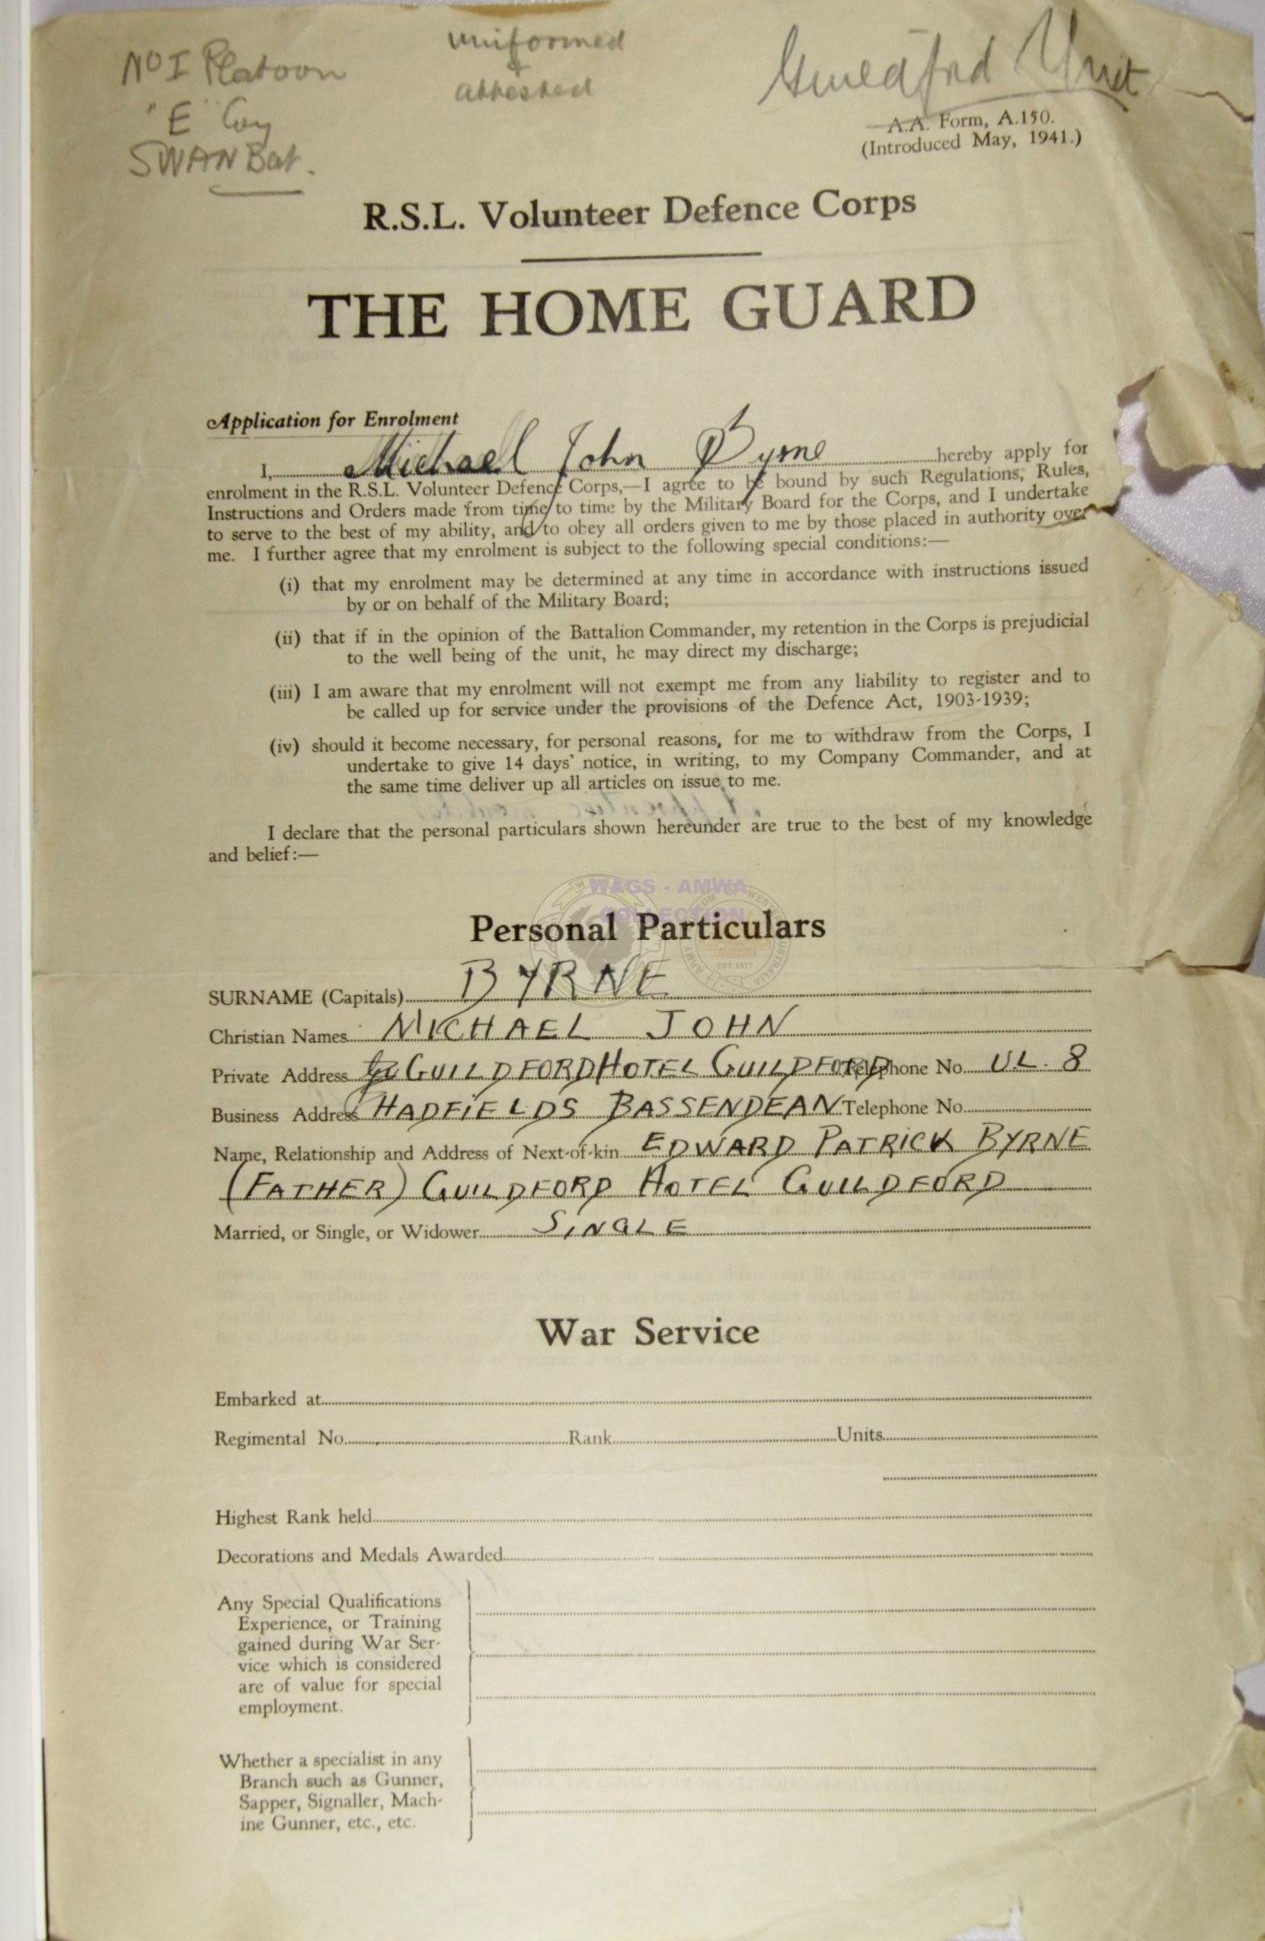 No I Platoon
"E" Coy
SWAN Bat.
uniformed
+
attested
Guildford Unit
A.A. Form, A.150.
(Introduced May, 1941.)
R.S.L. Volunteer Defence Corps
THE HOME GUARD
Application for Enrolment
I, Michael John Byrne hereby apply for
enrolment in the R.S.L. Volunteer Defence Corps,—I agree to be bound by such Regulations, Rules,
Instructions and Orders made from time to time by the Military Board for the Corps, and I undertake
to serve to the best of my ability, and to obey all orders given to me by those placed in authority over
me. I further agree that my enrolment is subject to the following special conditions:—
(i) that my enrolment may be determined at any time in accordance with instructions issued
by or on behalf of the Military Board;
(ii) that if in the opinion of the Battalion Commander, my retention in the Corps is prejudicial
to the well being of the unit, he may direct my discharge;
(iii) I am aware that my enrolment will not exempt me from any liability to register and to
be called up for service under the provisions of the Defence Act, 1903-1939;
(iv) should it become necessary, for personal reasons, for me to withdraw from the Corps, I
undertake to give 14 days' notice, in writing, to my Company Commander, and at
the same time deliver up all articles on issue to me.
I declare that the personal particulars shown hereunder are true to the best of my knowledge
and belief:—
WAGS - AMWA
COLLECTION
Personal Particulars
SURNAME (Capitals) BYRNE
Christian Names MICHAEL JOHN
Private Address GUILDFORD HOTEL GUILDFORD Telephone No. U.L. 8
Business Address HADFIELDS BASSENDEAN Telephone No.
Name, Relationship and Address of Next-of-kin EDWARD PATRICK BYRNE
(FATHER) GUILDFORD HOTEL GUILDFORD
Married, or Single, or Widower SINGLE
War Service
Embarked at
Regimental No. Rank Units
Highest Rank held
Decorations and Medals Awarded
Any Special Qualifications
Experience, or Training
gained during War Ser-
vice which is considered
are of value for special
employment.
Whether a specialist in any
Branch such as Gunner,
Sapper, Signaller, Mach-
ine Gunner, etc., etc.